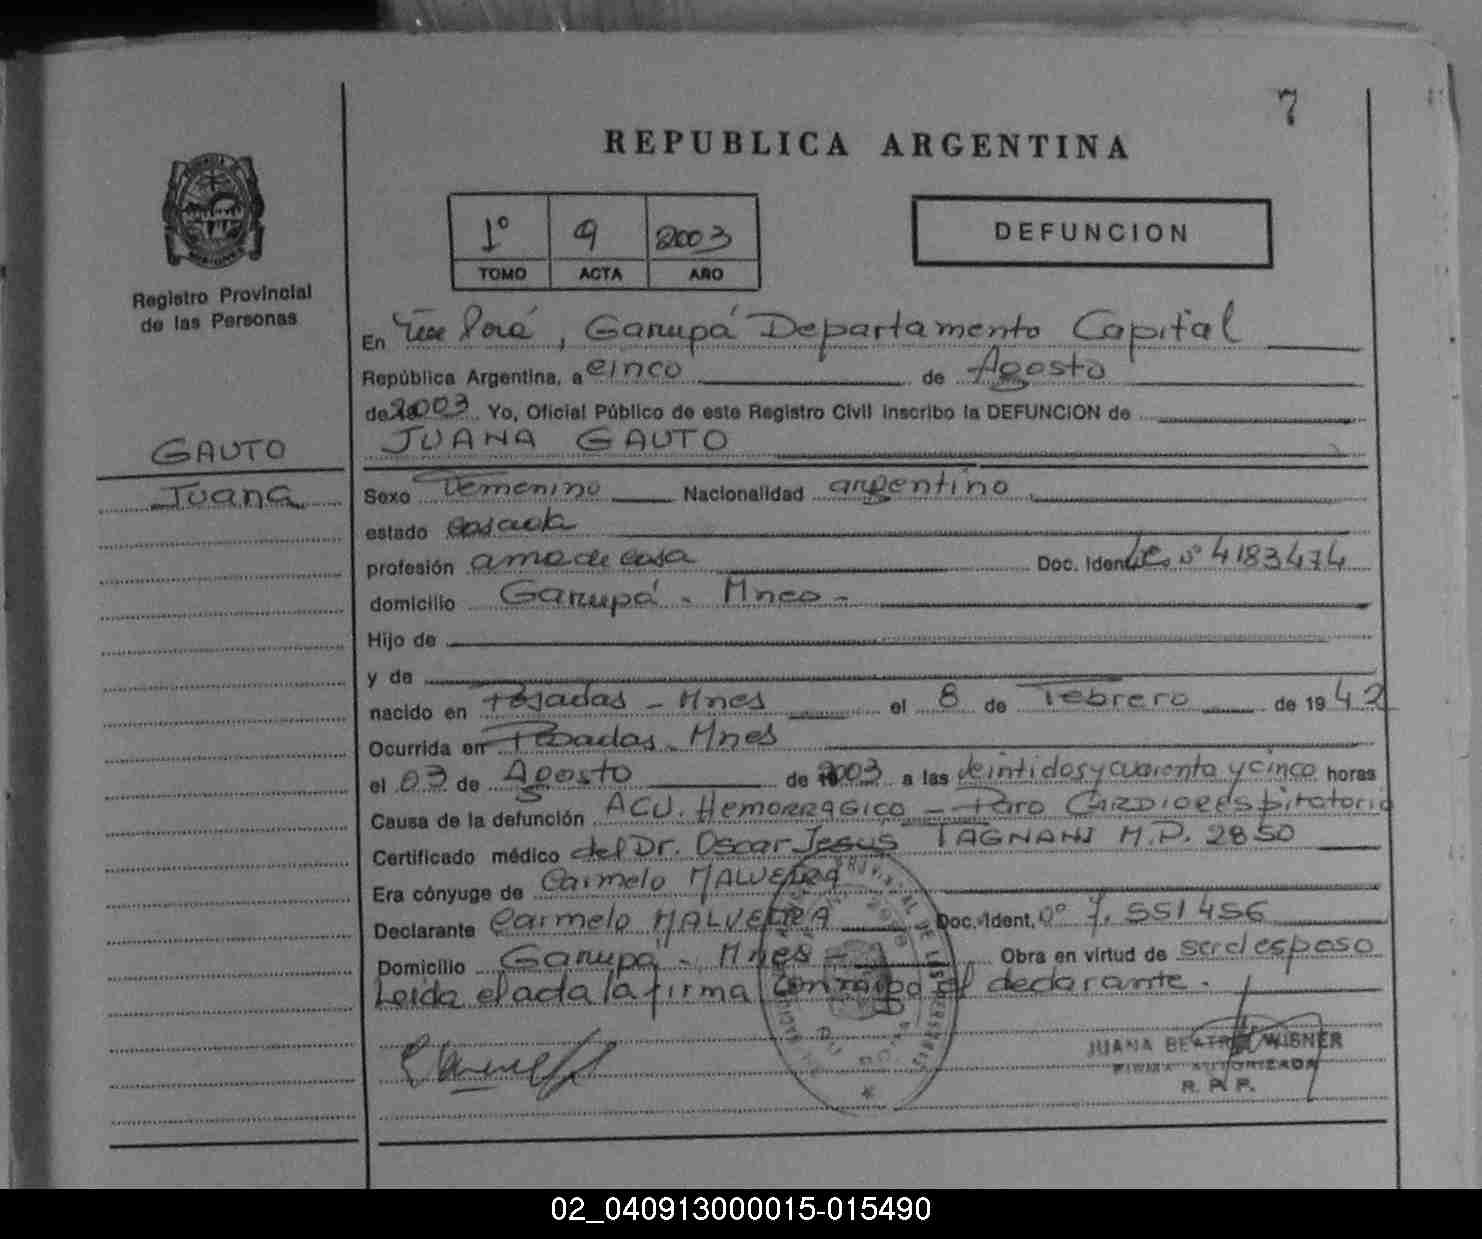 7
REPUBLICA ARGENTINA
1° 9 2003
TOMO ACTA AÑO
DEFUNCION
Registro Provincial
de las Personas
En Porá, Garupá Departamento Capital
República Argentina, a cinco de Agosto
de 2003 Yo, Oficial Público de este Registro Civil inscribo la DEFUNCION de
JUANA GAUTO
GAUTO
Juana
Sexo Femenino Nacionalidad argentino
estado casada
profesión ama de casa Doc. Ident. N° 4183474
domicilio Garupá - Mnes -
Hijo de
y de
nacido en Posadas - Mnes el 8 de Febrero de 1942
Ocurrida en Posadas - Mnes
el 03 de Agosto de 2003 a las veintidos y cuarenta y cinco horas
Causa de la defunción ACV. Hemorragico - Paro Cardiorespiratorio
Certificado médico del Dr. Oscar Jesus TAGNANI M.P. 2850
Era cónyuge de Carmelo MALVEIRA
Declarante Carmelo MALVEIRA Doc. Ident. N° 7.551456
Domicilio Garupá - Mnes - Obra en virtud de ser el esposo
Leida el acta la firma conmigo el declarante.
JUANA BEATRIZ WISNER
FIRMA AUTORIZADA
R. P. P.
02_040913000015-015490